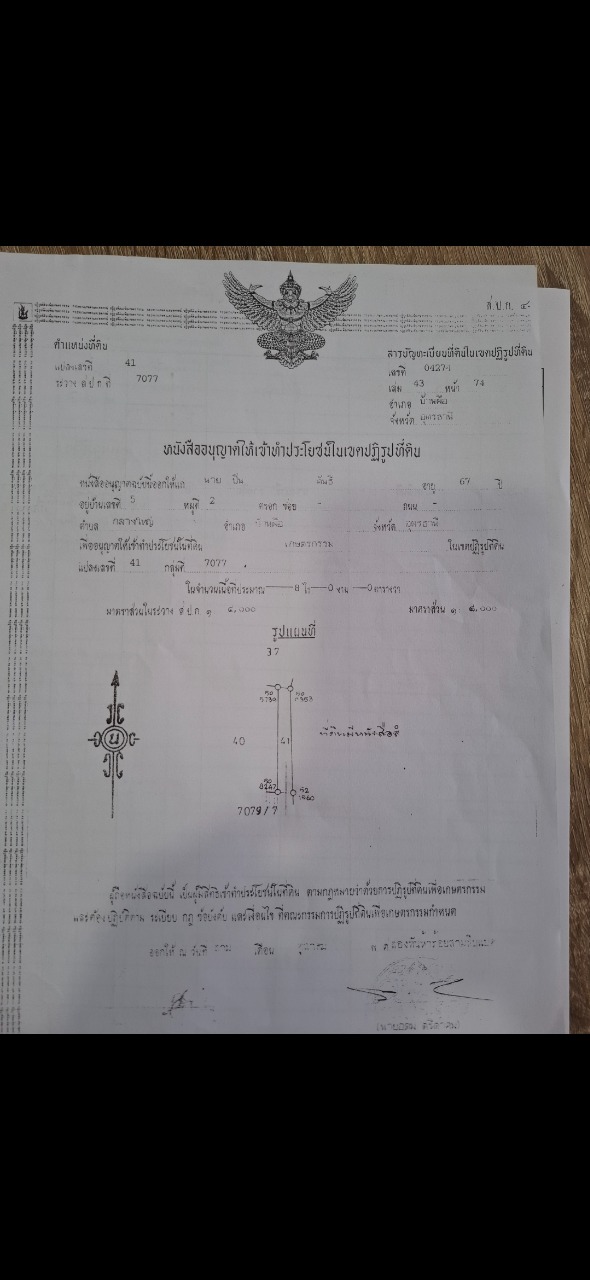 ส.ป.ก. ๔-
ตำแหน่งที่ดิน
แปลงเลขที่ 41
ระวาง ส.ป.ก.ที่ 7077
สารบัญทะเบียนที่ดินในเขตปฏิรูปที่ดิน
เลขที่ 04274
เล่ม 43 หน้า 74
อำเภอ บ้านผือ
จังหวัด อุดรธานี
หนังสืออนุญาตให้เข้าทำประโยชน์ในเขตปฏิรูปที่ดิน
หนังสืออนุญาตฉบับนี้ออกให้แก่ นาย ปิ่น อายุ 67 ปี
อยู่บ้านเลขที่ 5 หมู่ที่ 2 ตรอก ซอย - ถนน -
ตำบล กลางใหญ่ อำเภอ บ้านผือ จังหวัด อุดรธานี
เพื่ออนุญาตให้เข้าทำประโยชน์ในที่ดิน เกษตรกรรม ในเขตปฏิรูปที่ดิน
แปลงเลขที่ 41 กลุ่มที่ 7077
ในจำนวนเนื้อที่ประมาณ 8 ไร่ 0 งาน 0 ตารางวา
มาตราส่วนในระวาง ส.ป.ก. ๑ ๔,๐๐๐ มาตราส่วน ๑: ๔,๐๐๐
รูปแผนที่
37
40 41 ที่ดินมีหนังสือ
น
7079/7
ผู้ถือหนังสือฉบับนี้ เป็นผู้มีสิทธิเข้าทำประโยชน์ในที่ดิน ตามกฎหมายว่าด้วยการปฏิรูปที่ดินเพื่อเกษตรกรรม
และต้องปฏิบัติตาม ระเบียบ กฎ ข้อบังคับ และเงื่อนไข ที่คณะกรรมการปฏิรูปที่ดินเพื่อเกษตรกรรมกำหนด
ออกให้ ณ วันที่ เดือน พ.ศ.สองพันห้าร้อยสามสิบแปด